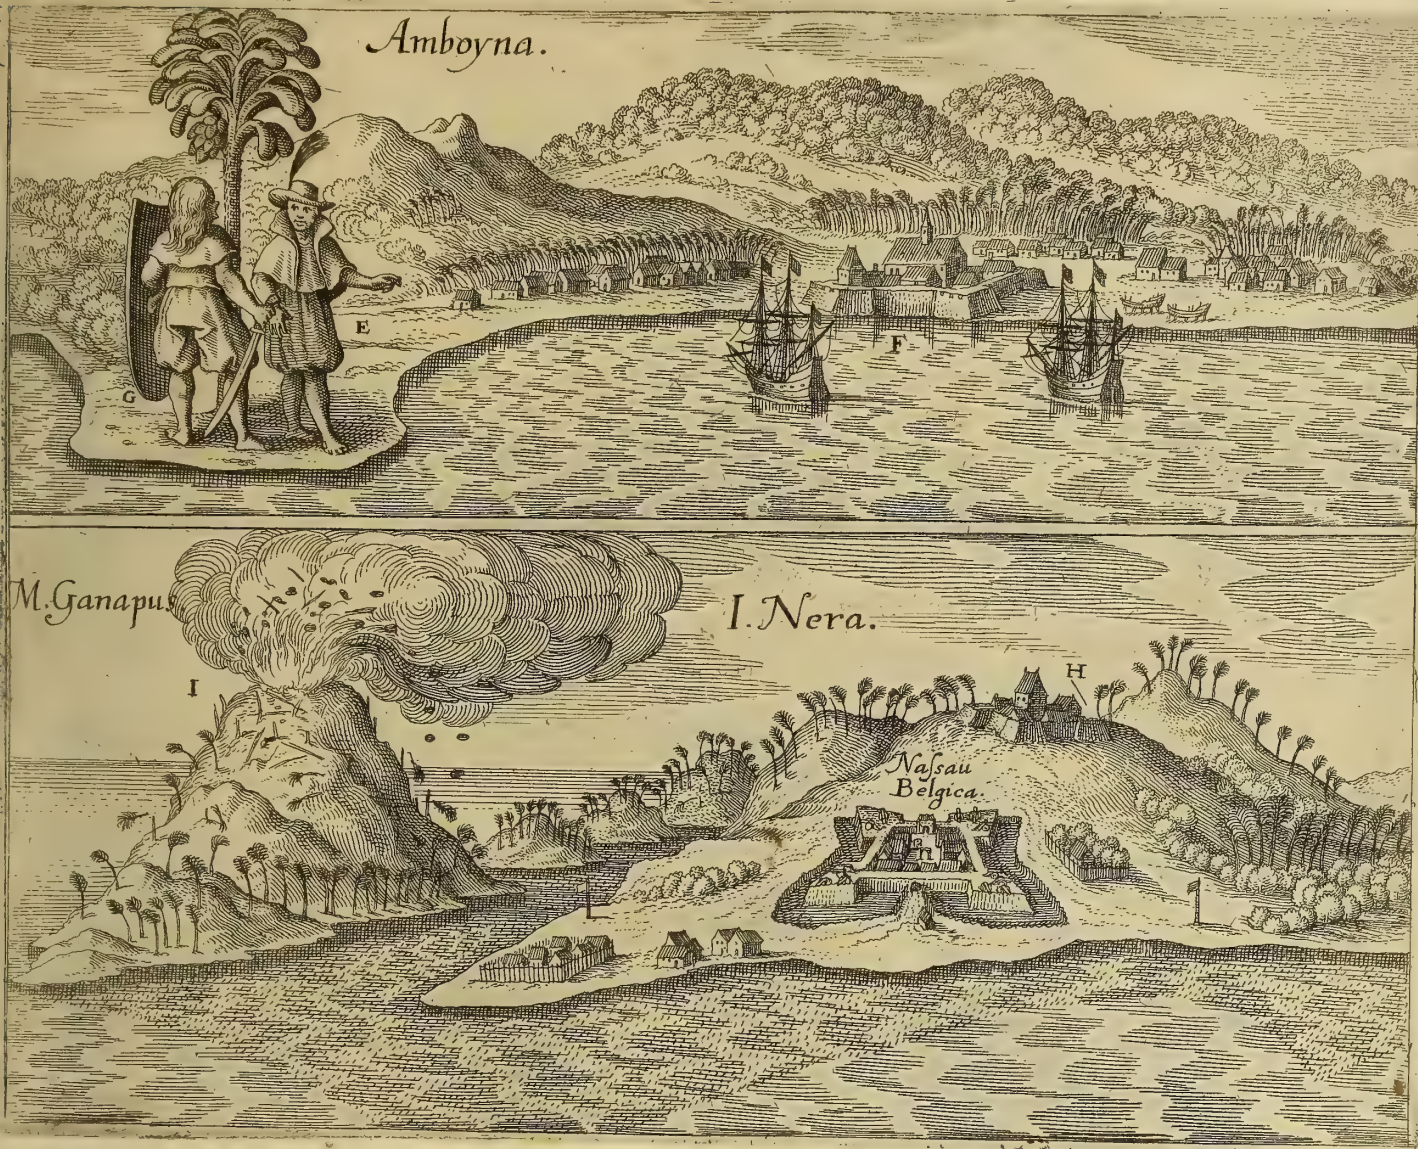 Amboyna.
E
F
G
M. Ganapus
I. Nera.
I
H
Naſsau
Belgica.